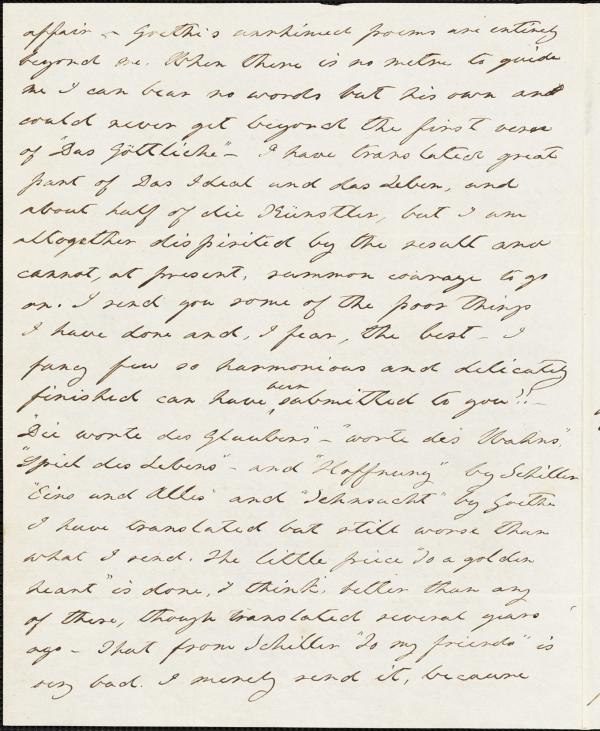 affair – Goethe's unrhimed poems are entirely
beyond me. When there is no metre to guide
me I can bear no words but his own and
could never get beyond the first verse
of "Das Göttliche" – I have translated great
part of Das Ideal und das Leben, and
about half of die Künstler, but I am
altogether dispirited by the result and
cannot, at present, summon courage to go
on. I send you some of the poor things
I have done and, I fear, the best – I
fancy few so harmonious and delicately
finished can have been submitted to you!! –
"Die worte des Glaubens" – "worte des Wahns",
"Spiel des Lebens" – and "Hoffnung" by Schiller
"Eins und Alles" and "Sehnsucht" by Goethe
I have translated but still worse than
what I send. The little piece "To a golden
heart" is done, I think, better than any
of these, though translated several years
ago – That from Schiller "To my friends" is
very bad. I merely send it, because